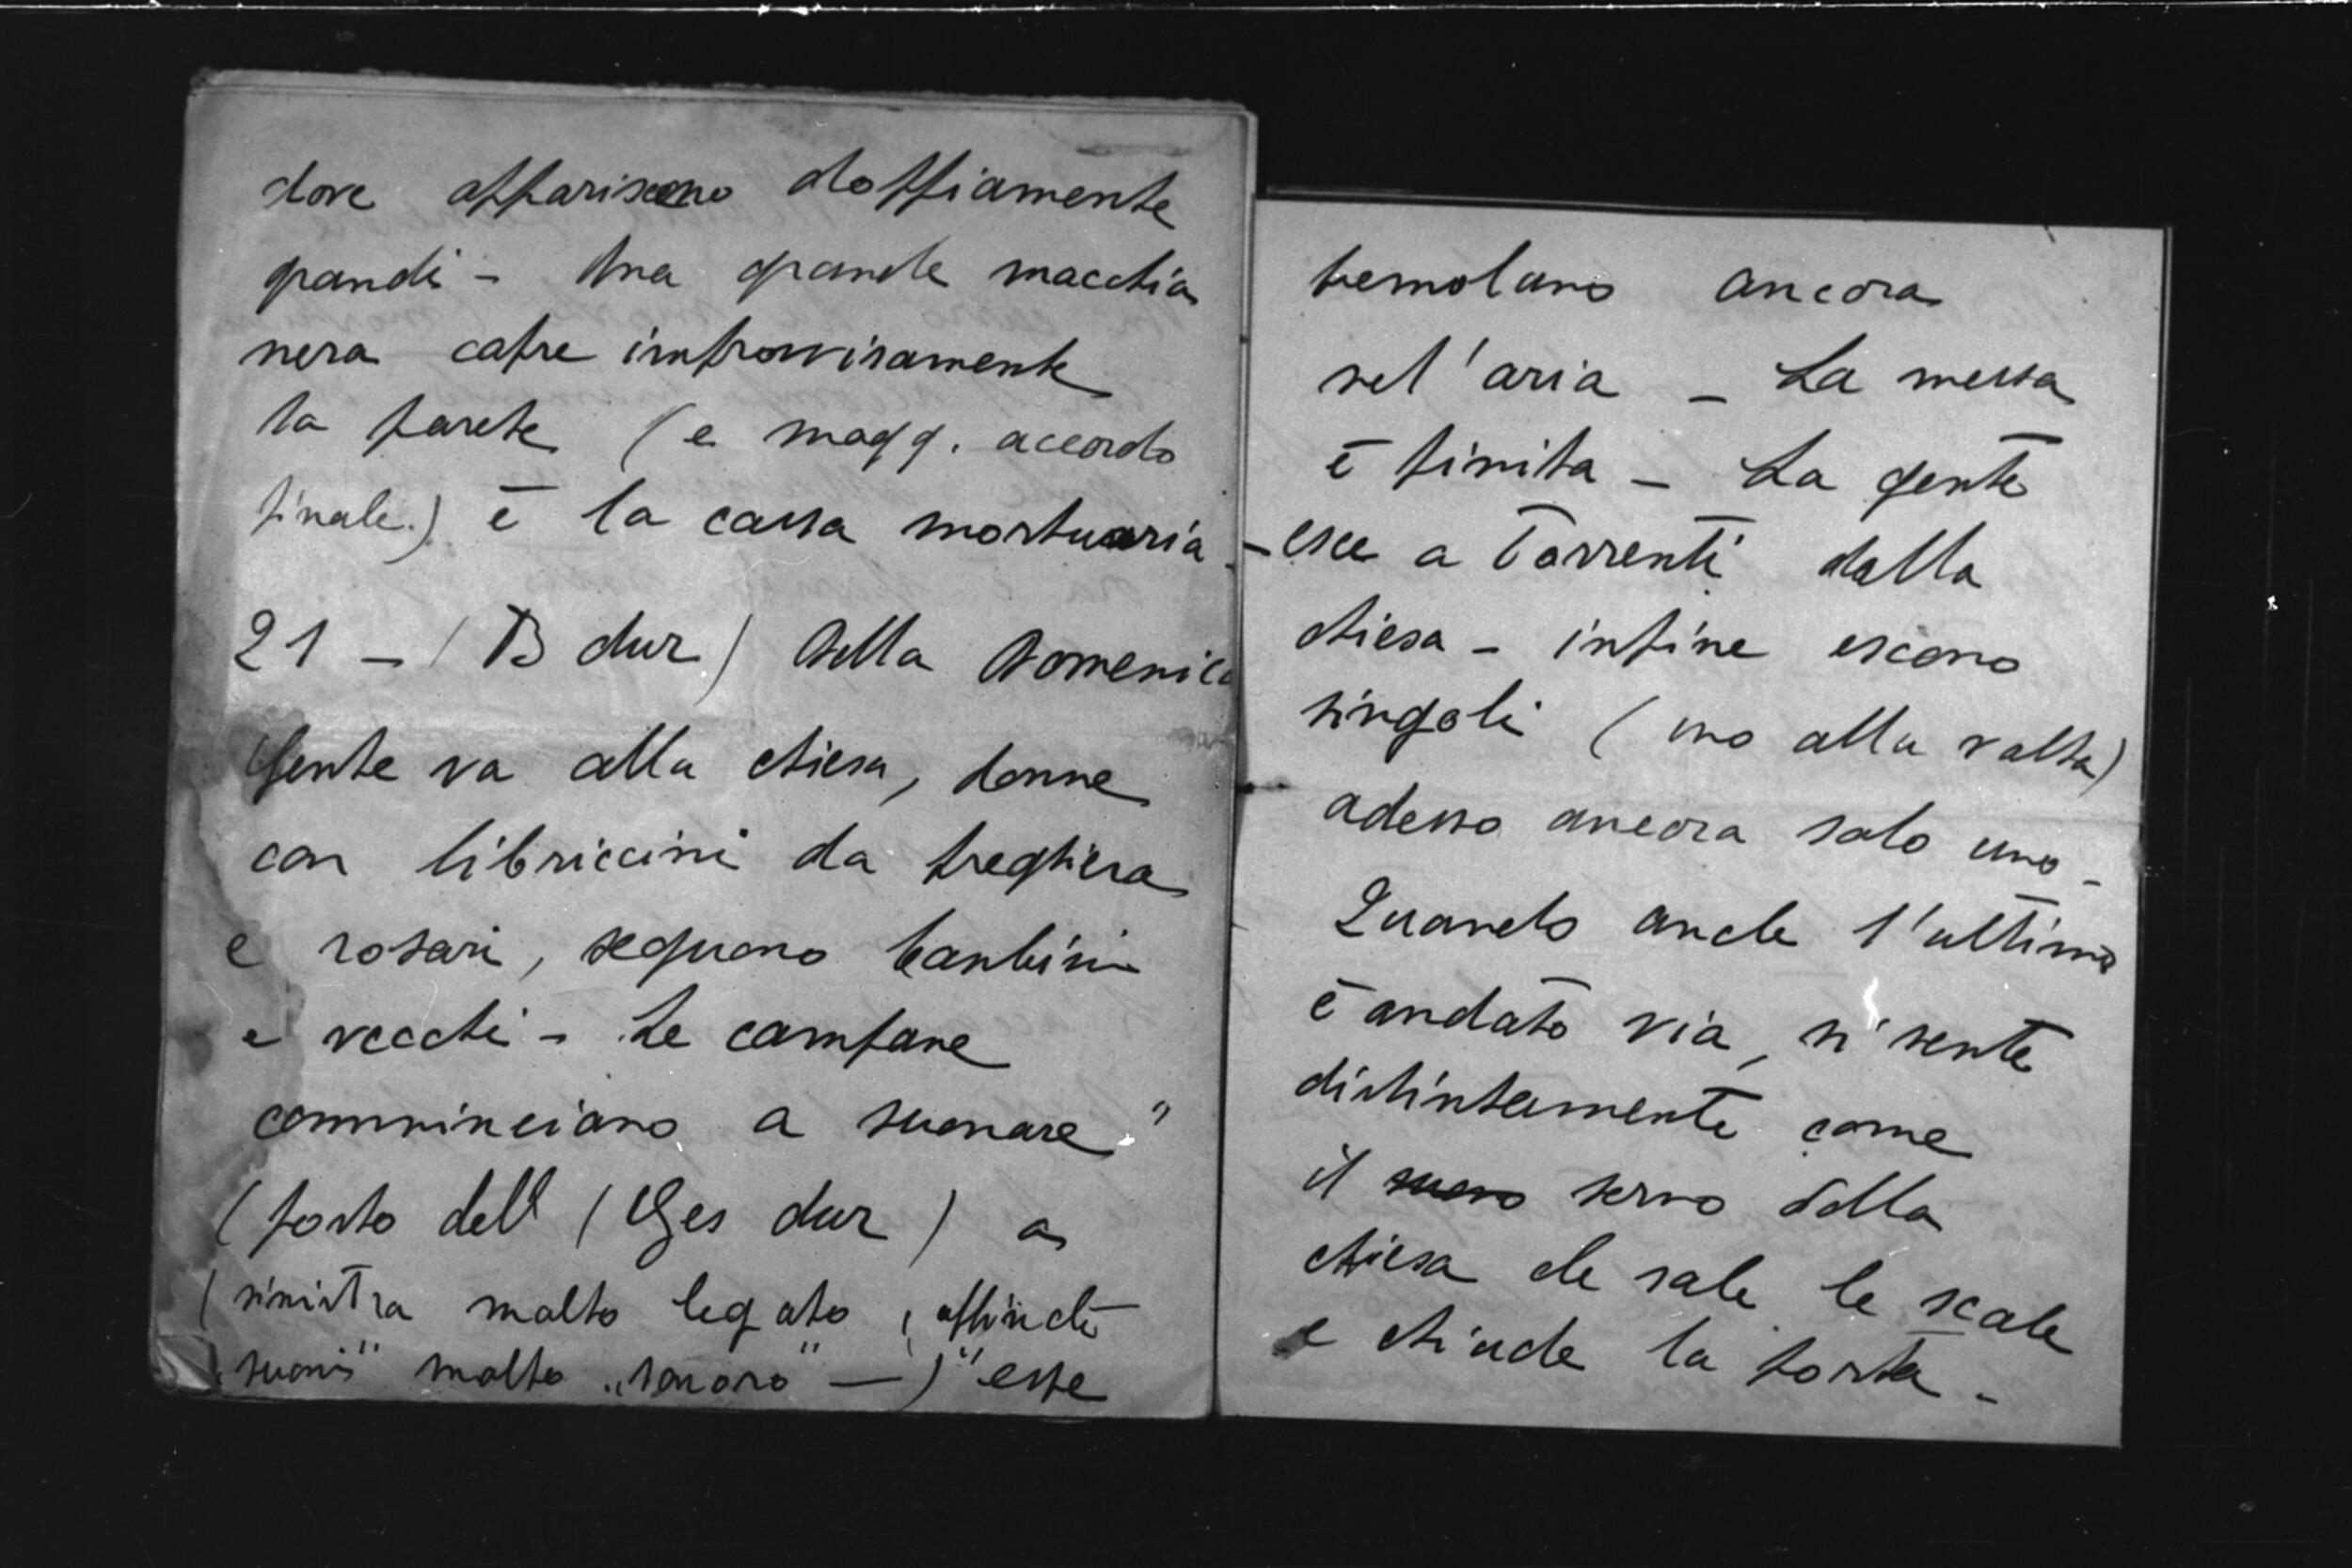 dove appariscono doppiamente
grandi - Una grande macchia
nera copre improvvisamente
la parete (e magg. accordo
finale.) è la cassa mortuaria -
21 - (B dur) Della Domenica
Gente va alla chiesa, donne
con libriccini da preghiera
e rosari, seguono bambini
e vecchi - Le campane
comminciano a suonare"
(posto dell (Ges dur) a
(sinistra molto legato, affinchè
"suoni" molto "sonoro" —)" esse
tremolano ancora
nel'aria - La messa
è finita - La gente
- esce a Torrenti dalla
chiesa - infine escono
singoli (uno alla volta)
adesso ancora solo uno -
Quando anche l'ultimo
è andato via, si sente
distintamente come
il servo della
chiesa che sale le scale
e chiude la porta -